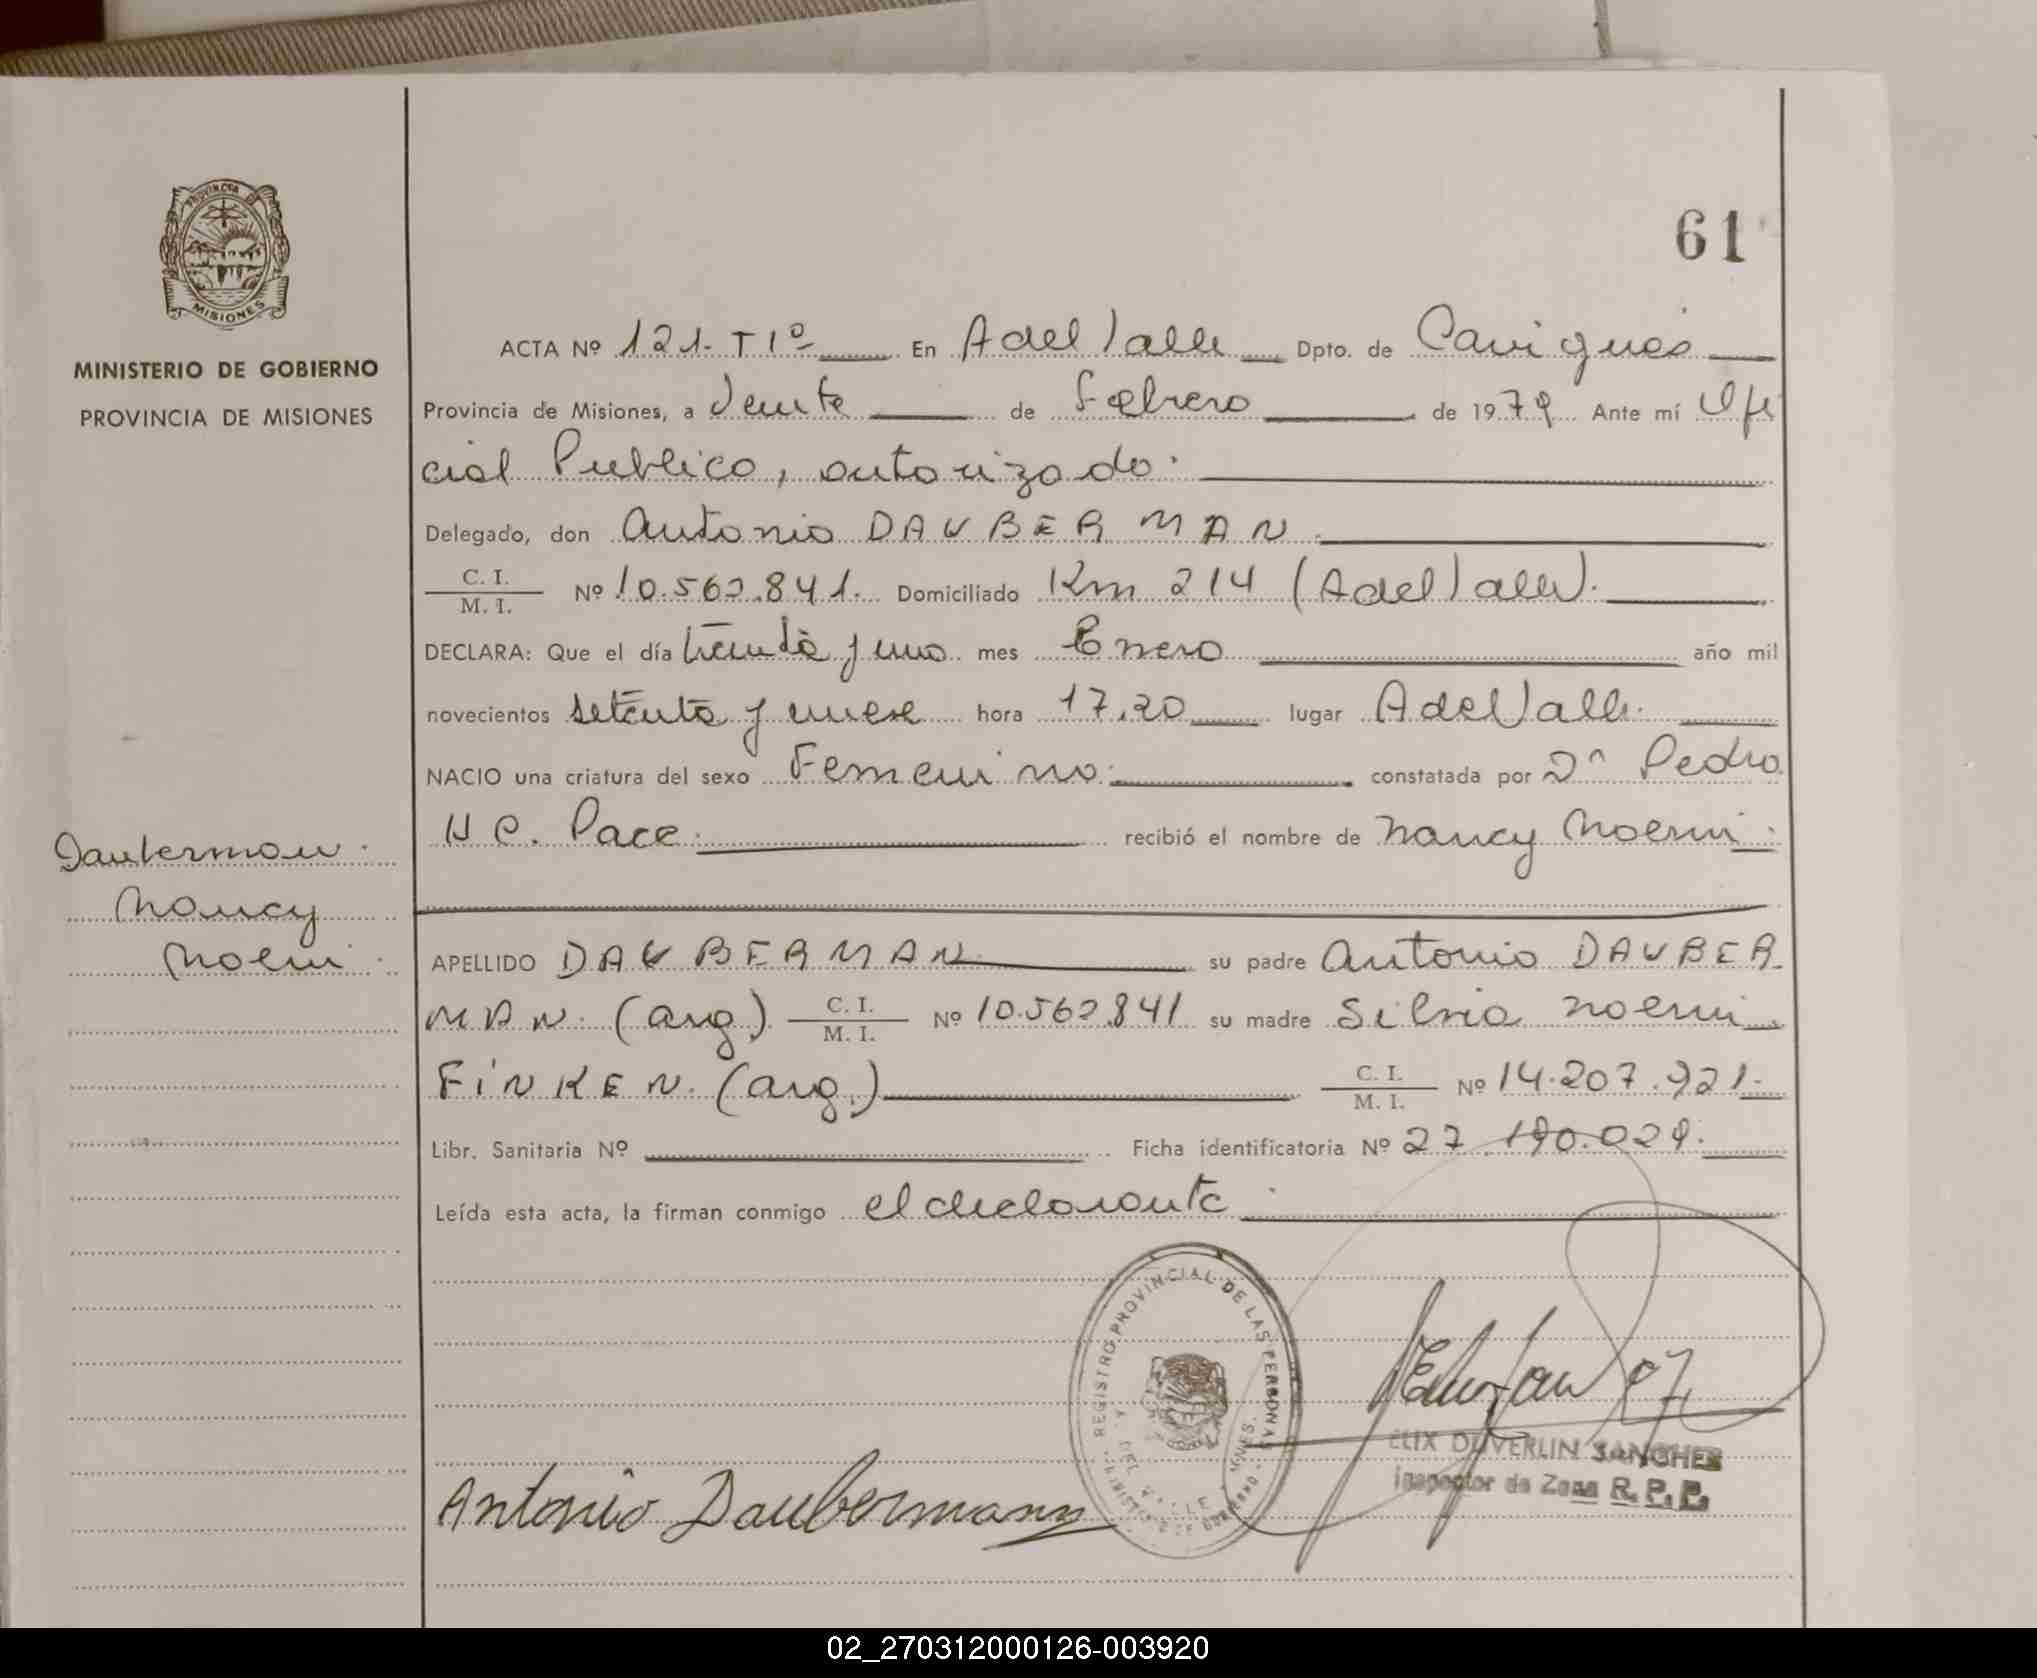 PROVINCIA DE
MISIONES
MINISTERIO DE GOBIERNO
PROVINCIA DE MISIONES
61
ACTA Nº 121. T 1º En A del Valle Dpto. de Cainguás
Provincia de Misiones, a Veinte de Febrero de 1979 Ante mí Ofi
cial Publico, autorizado.
Delegado, don Antonio DAUBERMAN
C. I.
M. I. Nº 10.562.841. Domiciliado Km 214 (A del Valle).
DECLARA: Que el día treinta y uno mes Enero año mil
novecientos setenta y nueve hora 17,20 lugar A del Valle.
NACIO una criatura del sexo Femenino. constatada por Dr Pedro
H C. Pace. recibió el nombre de Nancy Noemi.
Dauberman.
Nancy
Noemi.
APELLIDO DAUBERMAN. su padre Antonio DAUBER
MAN. (arg.) C. I.
M. I. Nº 10.562.841 su madre Silvia Noemi
FINKEN. (arg.) C. I.
M. I. Nº 14.207.921.
Libr. Sanitaria Nº Ficha identificatoria Nº 27.190.029.
Leída esta acta, la firman conmigo el declarante.
REGISTRO PROVINCIAL DE LAS PERSONAS
MINISTERIO DE GOBIERNO
DEL VALLE
ELIX DUVERLIN SANCHEZ
Inspector de Zona R. P. P.
Antonio Daubermann
02_270312000126-003920